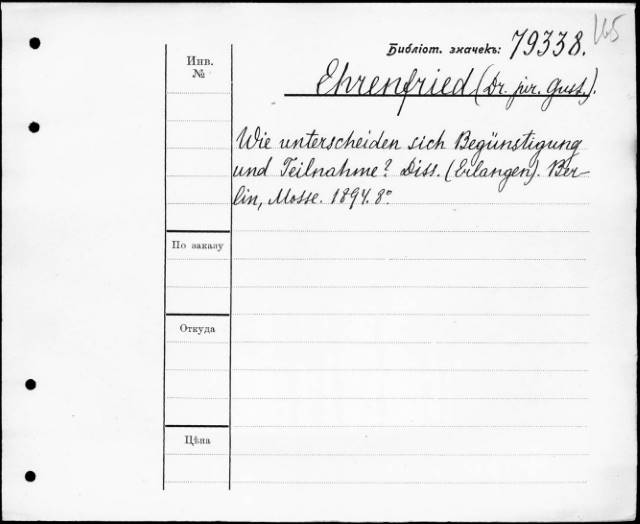 165
Библіот. значекъ: 79338.
Инв.
№
Ehrenfried (Dr. jur. Gust.).
Wie unterscheiden sich Begünstigung
und Teilnahme? Diss. (Erlangen). Ber-
lin, Mosse. 1894. 8°
По заказу
Откуда
Цѣна